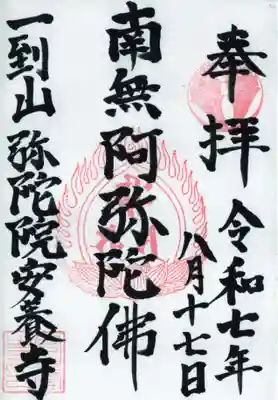 奉拝
令和七年
八月十七日
南無阿弥陀佛
一到山弥陀院安養寺